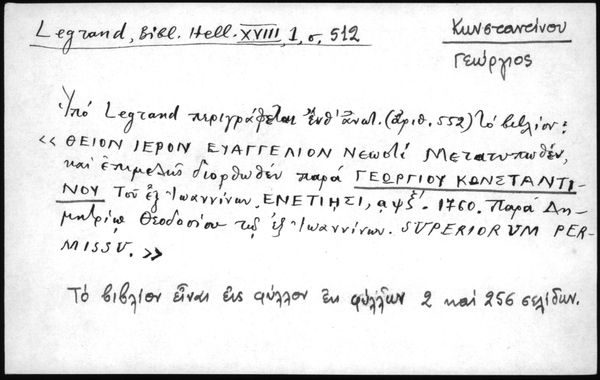 Legrand, Bibl. Hell. XVIII, 1, σ. 512
Κωνσταντίνου
Γεώργιος
Ὑπό Legrand περιγράφεται ἔνθ' ἀνωτ. (ἀριθ. 552) τό βιβλίον:
« ΘΕΙΟΝ ΙΕΡΟΝ ΕΥΑΓΓΕΛΙΟΝ Νεωστί Μετατυπωθέν,
καί ἐπιμελῶς διορθωθέν παρά ΓΕΩΡΓΙΟΥ ΚΩΝΣΤΑΝΤΙ-
ΝΟΥ Τοῦ ἐξ Ἰωαννίνων. ΕΝΕΤΙΗΣΙ, αψξ΄. 1760. Παρά Δη-
μητρίῳ Θεοδοσίου τῷ ἐξ Ἰωαννίνων. SUPERIORUM PER-
MISSU. »
Τό βιβλίον εἶναι εἰς φύλλον ἐκ φύλλων 2 καί 256 σελίδων.